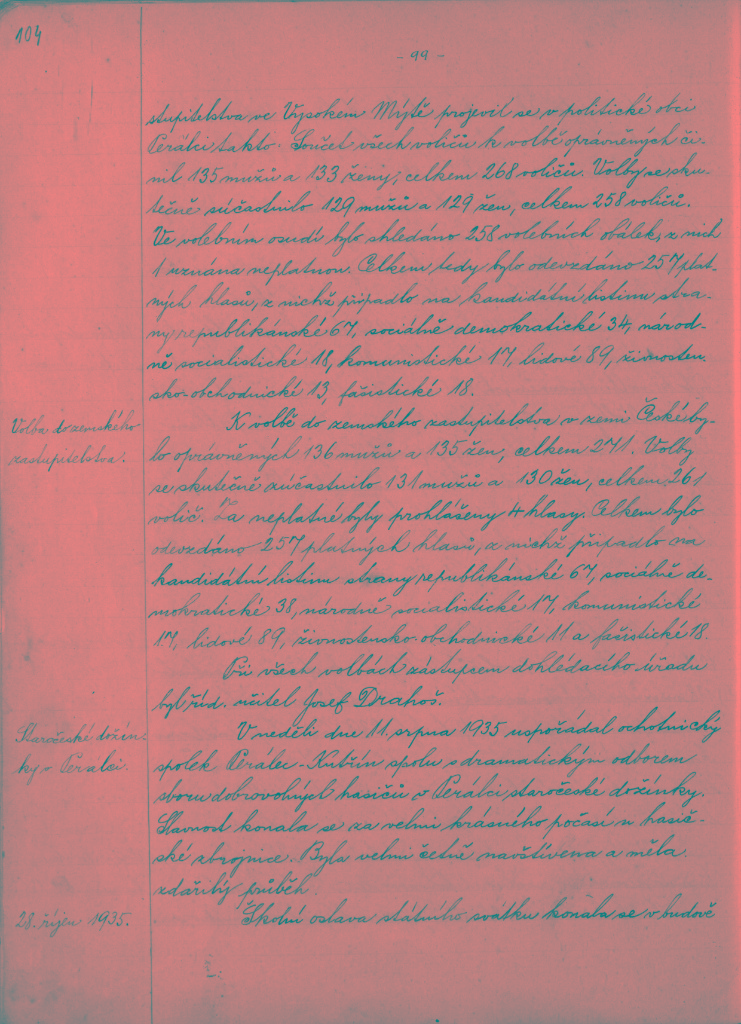 104
- 99 -
stupitelstva ve Vysokém Mýtě projevil se v politické obci
Perálci takto. Součet všech voličů k volbě oprávněných či-
nil 135 mužů a 133 ženy, celkem 268 voličů. Volby se sku-
tečně súčastnilo 129 mužů a 129 žen, celkem 258 voličů.
Ve volebním osudí bylo shledáno 258 volebních obálek, z nich
1 uznána neplatnou. Celkem tedy bylo odevzdáno 257 plat-
ných hlasů, z nichž připadlo na kandidátní listinu stra-
ny republikánské 67, sociálně demokratické 34, národ-
ně socialistické 18, komunistické 17, lidové 89, živnosten-
sko-obchodnické 13, fašistické 18.
Volba do zemského
zastupitelstva.
K volbě do zemského zastupitelstva v zemi České by-
lo oprávněných 136 mužů a 135 žen, celkem 271. Volby
se skutečně zúčastnilo 131 mužů a 130 žen, celkem 261
volič. Za neplatné byly prohlášeny 4 hlasy. Celkem bylo
odevzdáno 257 platných hlasů, z nichž připadlo na
kandidátní listinu strany republikánské 67, sociálně de-
mokratické 38, národně socialistické 17, komunistické
17, lidové 89, živnostensko-obchodnické 11 a fašistické 18.
Při všech volbách zástupcem dohlédacího úřadu
byl říd. učitel Josef Drahoš.
Staročeské dožín-
ky v Perálci.
V neděli dne 11. srpna 1935 uspořádal ochotnický
spolek Perálec - Kutřín spolu s dramatickým odborem
sboru dobrovolných hasičů v Perálci staročeské dožínky.
Slavnost konala se za velmi krásného počasí u hasič-
ské zbrojnice. Byla velmi četně navštívena a měla
zdařilý průběh.
28. říjen 1935.
Školní oslava státního svátku konala se v budově